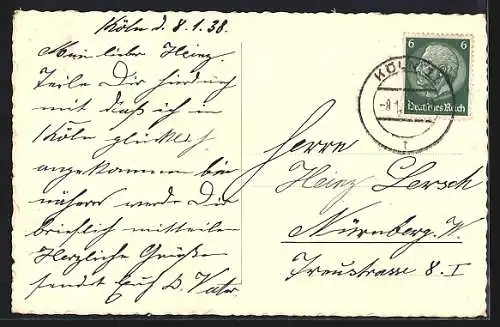 Köln d. 8.1.38.
Mein lieber Heinz.
Teile Dir hierdurch
mit daß ich in
Köln glücklich
angekommen bin
näheres werde Dir
brieflich mitteilen
Herzliche Grüße
sendet Euch D. Vater.
6 6
Deutsches Reich
KÖLN
-8.1.
Herrn
Heinz Lersch
Nürnberg. W.
Treustrasse 8. I